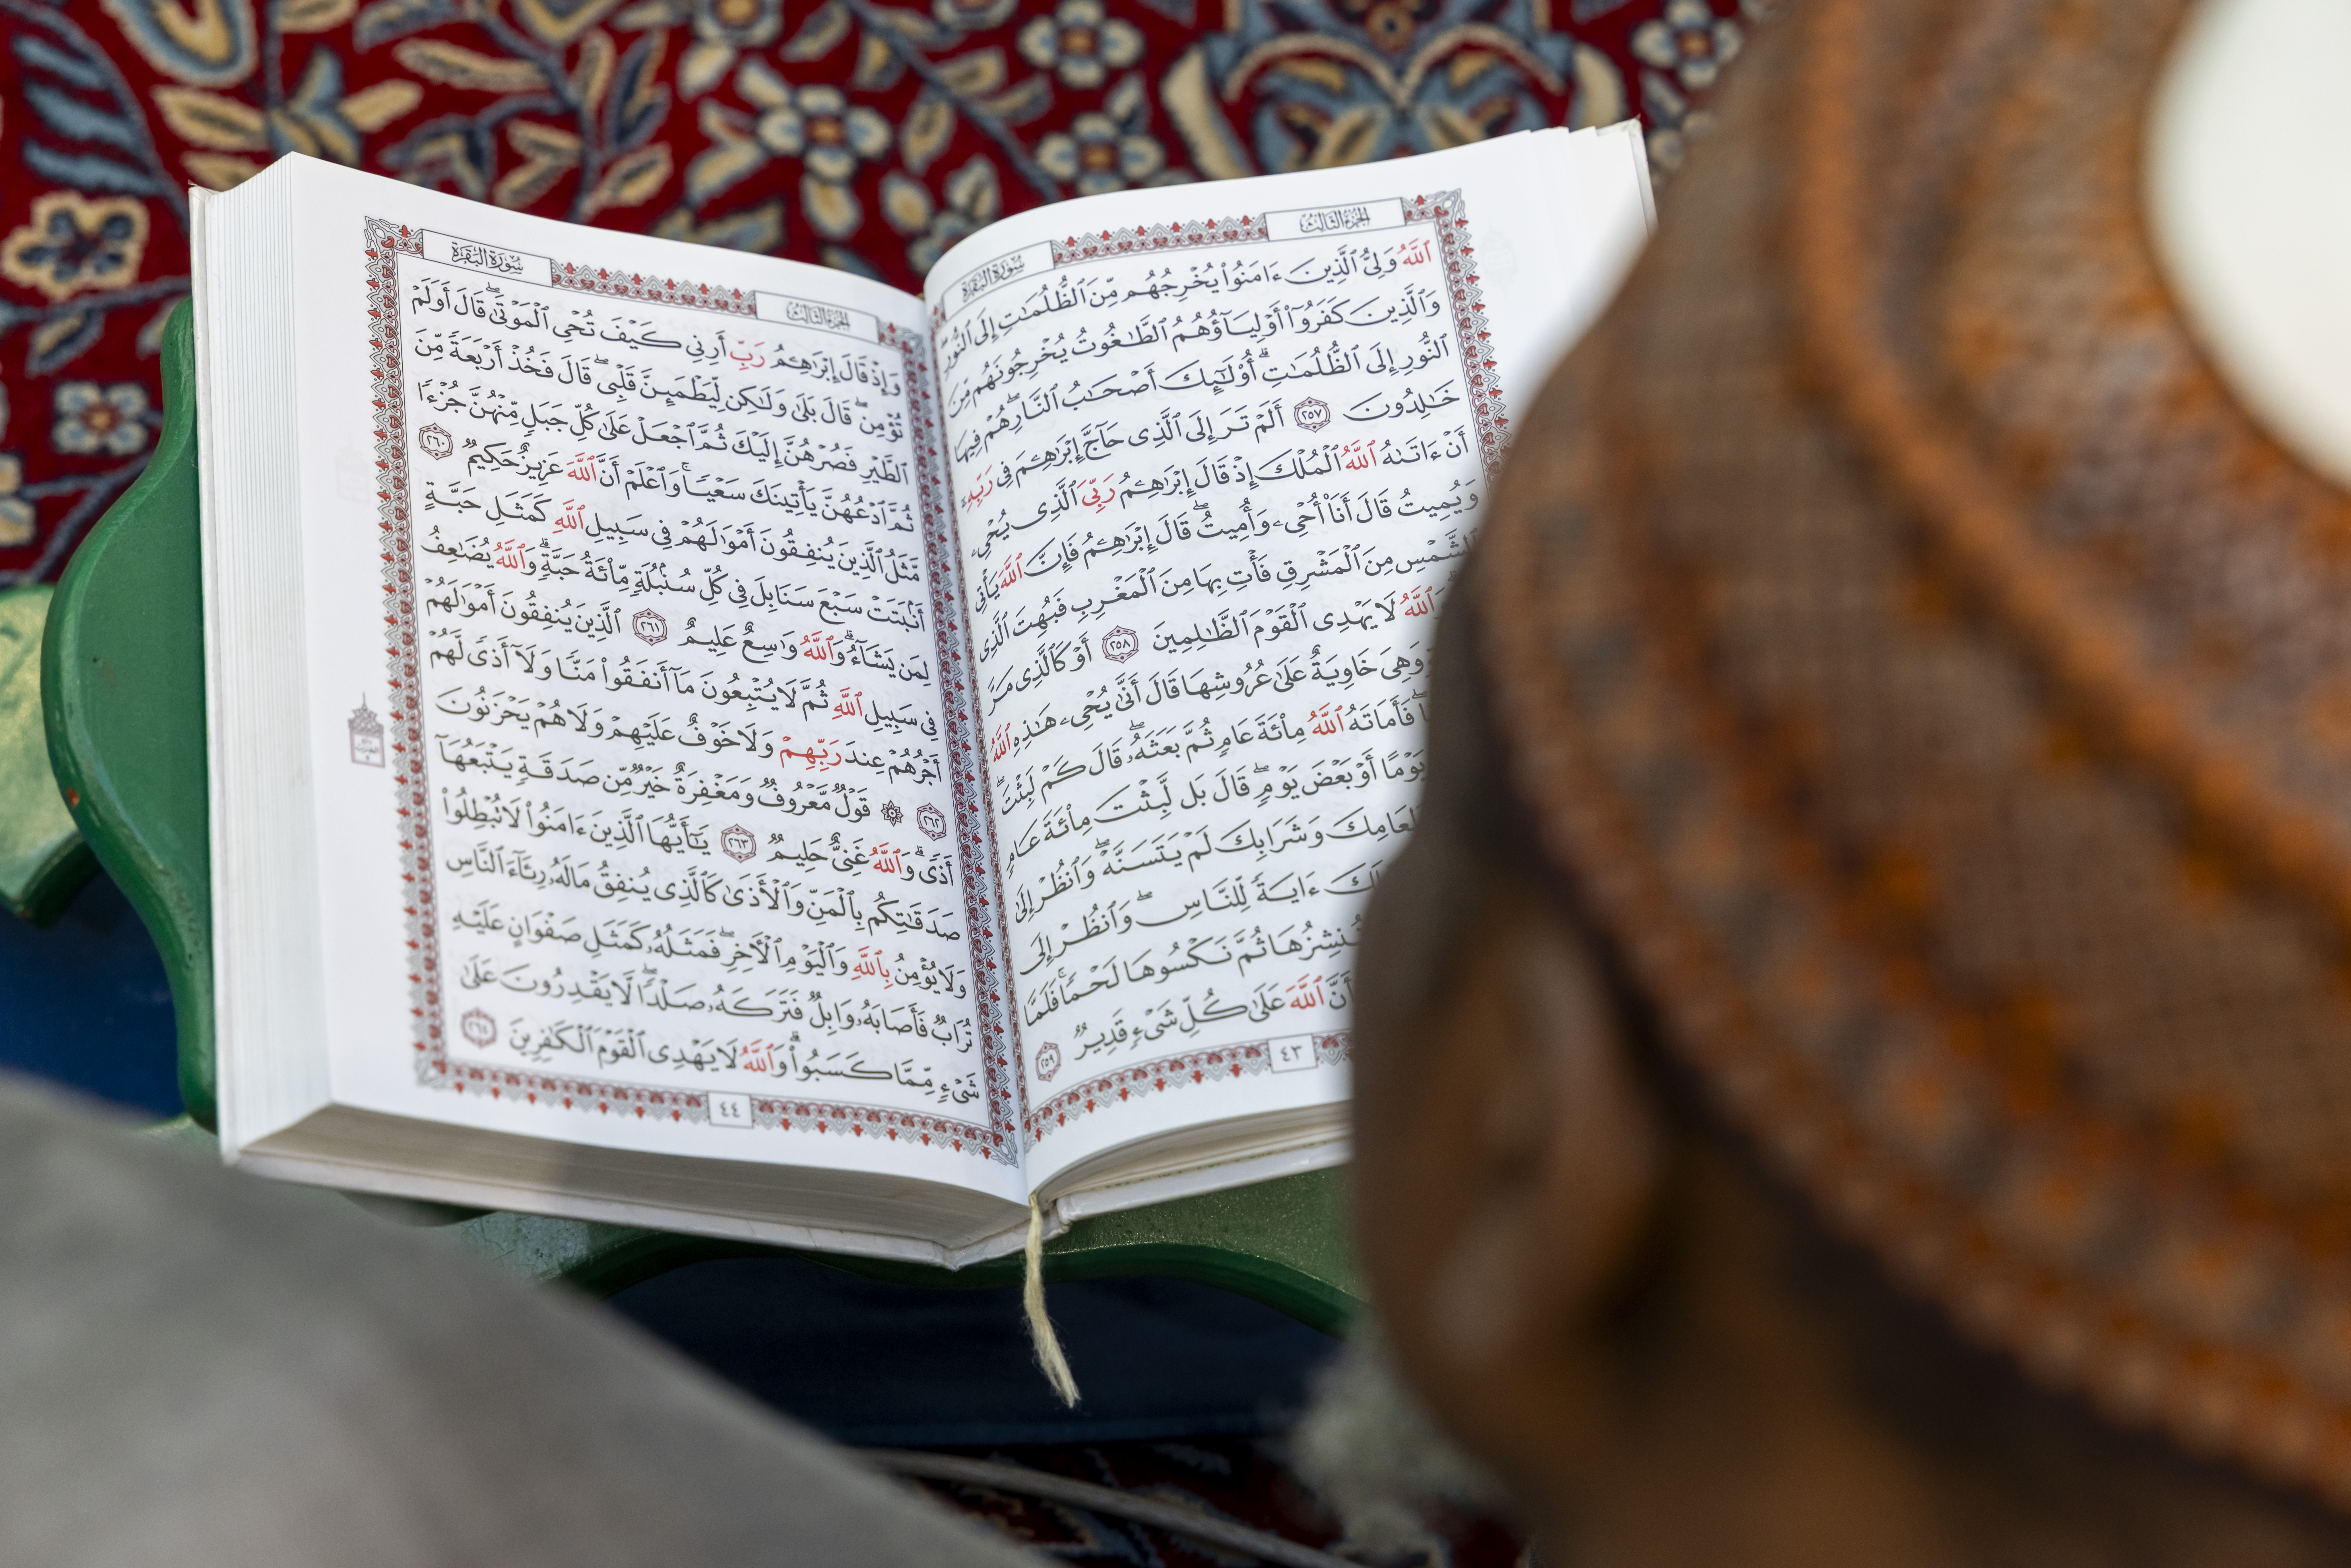 الجزء الثالث
سورة البقرة
ٱللَّهُ وَلِيُّ ٱلَّذِينَ ءَامَنُوا۟ يُخْرِجُهُم مِّنَ ٱلظُّلُمَـٰتِ إِلَى ٱلنُّورِ
وَٱلَّذِينَ كَفَرُوٓا۟ أَوْلِيَآؤُهُمُ ٱلطَّـٰغُوتُ يُخْرِجُونَهُم مِّنَ
ٱلنُّورِ إِلَى ٱلظُّلُمَـٰتِ ۗ أُو۟لَـٰٓئِكَ أَصْحَـٰبُ ٱلنَّارِ ۖ هُمْ فِيهَا
خَـٰلِدُونَ ٢٥٧ أَلَمْ تَرَ إِلَى ٱلَّذِى حَآجَّ إِبْرَٰهِـۧمَ فِى رَبِّهِۦٓ
أَنْ ءَاتَىٰهُ ٱللَّهُ ٱلْمُلْكَ إِذْ قَالَ إِبْرَٰهِـۧمُ رَبِّىَ ٱلَّذِى يُحْىِۦ
وَيُمِيتُ قَالَ أَنَا۠ أُحْىِۦ وَأُمِيتُ ۖ قَالَ إِبْرَٰهِـۧمُ فَإِنَّ ٱللَّهَ يَأْتِى
ٱلشَّمْسِ مِنَ ٱلْمَشْرِقِ فَأْتِ بِهَا مِنَ ٱلْمَغْرِبِ فَبُهِتَ ٱلَّذِى
ٱللَّهُ لَا يَهْدِى ٱلْقَوْمَ ٱلظَّـٰلِمِينَ ٢٥٨ أَوْ كَٱلَّذِى مَرَّ
وَهِىَ خَاوِيَةٌ عَلَىٰ عُرُوشِهَا قَالَ أَنَّىٰ يُحْىِۦ هَـٰذِهِ ٱللَّهُ
فَأَمَاتَهُ ٱللَّهُ مِا۟ئَةَ عَامٍ ثُمَّ بَعَثَهُۥ ۖ قَالَ كَمْ لَبِثْتَ ۖ
يَوْمًا أَوْ بَعْضَ يَوْمٍ ۖ قَالَ بَل لَّبِثْتَ مِا۟ئَةَ عَامٍ
وَشَرَابِكَ لَمْ يَتَسَنَّهْ ۖ وَٱنظُرْ إِلَىٰ
ءَايَةً لِّلنَّاسِ ۖ وَٱنظُرْ إِلَى
نُنشِزُهَا ثُمَّ نَكْسُوهَا لَحْمًا ۚ فَلَمَّا
أَنَّ ٱللَّهَ عَلَىٰ كُلِّ شَىْءٍ قَدِيرٌ ٢٥٩
٤٣
الجزء الثالث
سورة البقرة
وَإِذْ قَالَ إِبْرَٰهِـۧمُ رَبِّ أَرِنِى كَيْفَ تُحْىِ ٱلْمَوْتَىٰ ۖ قَالَ أَوَلَمْ
تُؤْمِن ۖ قَالَ بَلَىٰ وَلَـٰكِن لِّيَطْمَئِنَّ قَلْبِى ۖ قَالَ فَخُذْ أَرْبَعَةً مِّنَ
ٱلطَّيْرِ فَصُرْهُنَّ إِلَيْكَ ثُمَّ ٱجْعَلْ عَلَىٰ كُلِّ جَبَلٍ مِّنْهُنَّ جُزْءًا
ثُمَّ ٱدْعُهُنَّ يَأْتِينَكَ سَعْيًا ۚ وَٱعْلَمْ أَنَّ ٱللَّهَ عَزِيزٌ حَكِيمٌ ٢٦٠
مَّثَلُ ٱلَّذِينَ يُنفِقُونَ أَمْوَٰلَهُمْ فِى سَبِيلِ ٱللَّهِ كَمَثَلِ حَبَّةٍ
أَنۢبَتَتْ سَبْعَ سَنَابِلَ فِى كُلِّ سُنۢبُلَةٍ مِّا۟ئَةُ حَبَّةٍ ۗ وَٱللَّهُ يُضَـٰعِفُ
لِمَن يَشَآءُ ۗ وَٱللَّهُ وَٰسِعٌ عَلِيمٌ ٢٦١ ٱلَّذِينَ يُنفِقُونَ أَمْوَٰلَهُمْ
فِى سَبِيلِ ٱللَّهِ ثُمَّ لَا يُتْبِعُونَ مَآ أَنفَقُوا۟ مَنًّا وَلَآ أَذًى لَّهُمْ
أَجْرُهُمْ عِندَ رَبِّهِمْ وَلَا خَوْفٌ عَلَيْهِمْ وَلَا هُمْ يَحْزَنُونَ
٢٦٢ ۞ قَوْلٌ مَّعْرُوفٌ وَمَغْفِرَةٌ خَيْرٌ مِّن صَدَقَةٍ يَتْبَعُهَآ
أَذًى ۗ وَٱللَّهُ غَنِىٌّ حَلِيمٌ ٢٦٣ يَـٰٓأَيُّهَا ٱلَّذِينَ ءَامَنُوا۟ لَا تُبْطِلُوا۟
صَدَقَـٰتِكُم بِٱلْمَنِّ وَٱلْأَذَىٰ كَٱلَّذِى يُنفِقُ مَالَهُۥ رِئَآءَ ٱلنَّاسِ
وَلَا يُؤْمِنُ بِٱللَّهِ وَٱلْيَوْمِ ٱلْـَٔاخِرِ ۖ فَمَثَلُهُۥ كَمَثَلِ صَفْوَانٍ عَلَيْهِ
تُرَابٌ فَأَصَابَهُۥ وَابِلٌ فَتَرَكَهُۥ صَلْدًا ۖ لَّا يَقْدِرُونَ عَلَىٰ
شَىْءٍ مِّمَّا كَسَبُوا۟ ۗ وَٱللَّهُ لَا يَهْدِى ٱلْقَوْمَ ٱلْكَـٰفِرِينَ ٢٦٤
٤٤